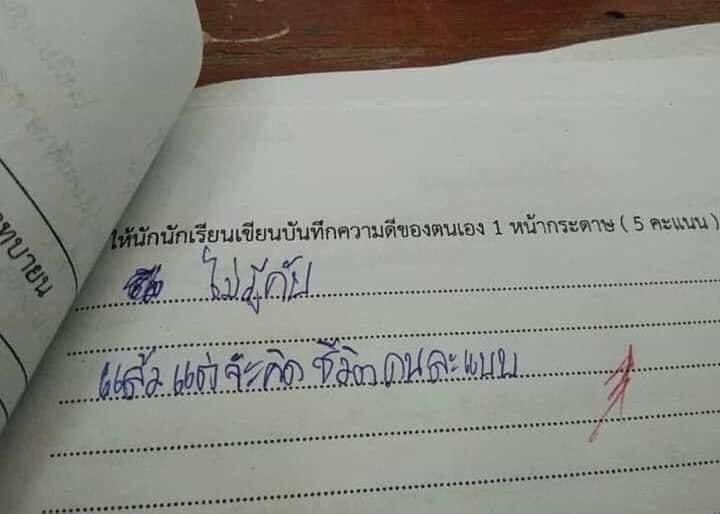 ให้นักนักเรียนเขียนบันทึกความดีของตนเอง 1 หน้ากระดาษ ( 5 คะแนน )
ไม่รู้คับ
แล้วแต่จะคิด ชีวิตคนละแบบ
ทบายน